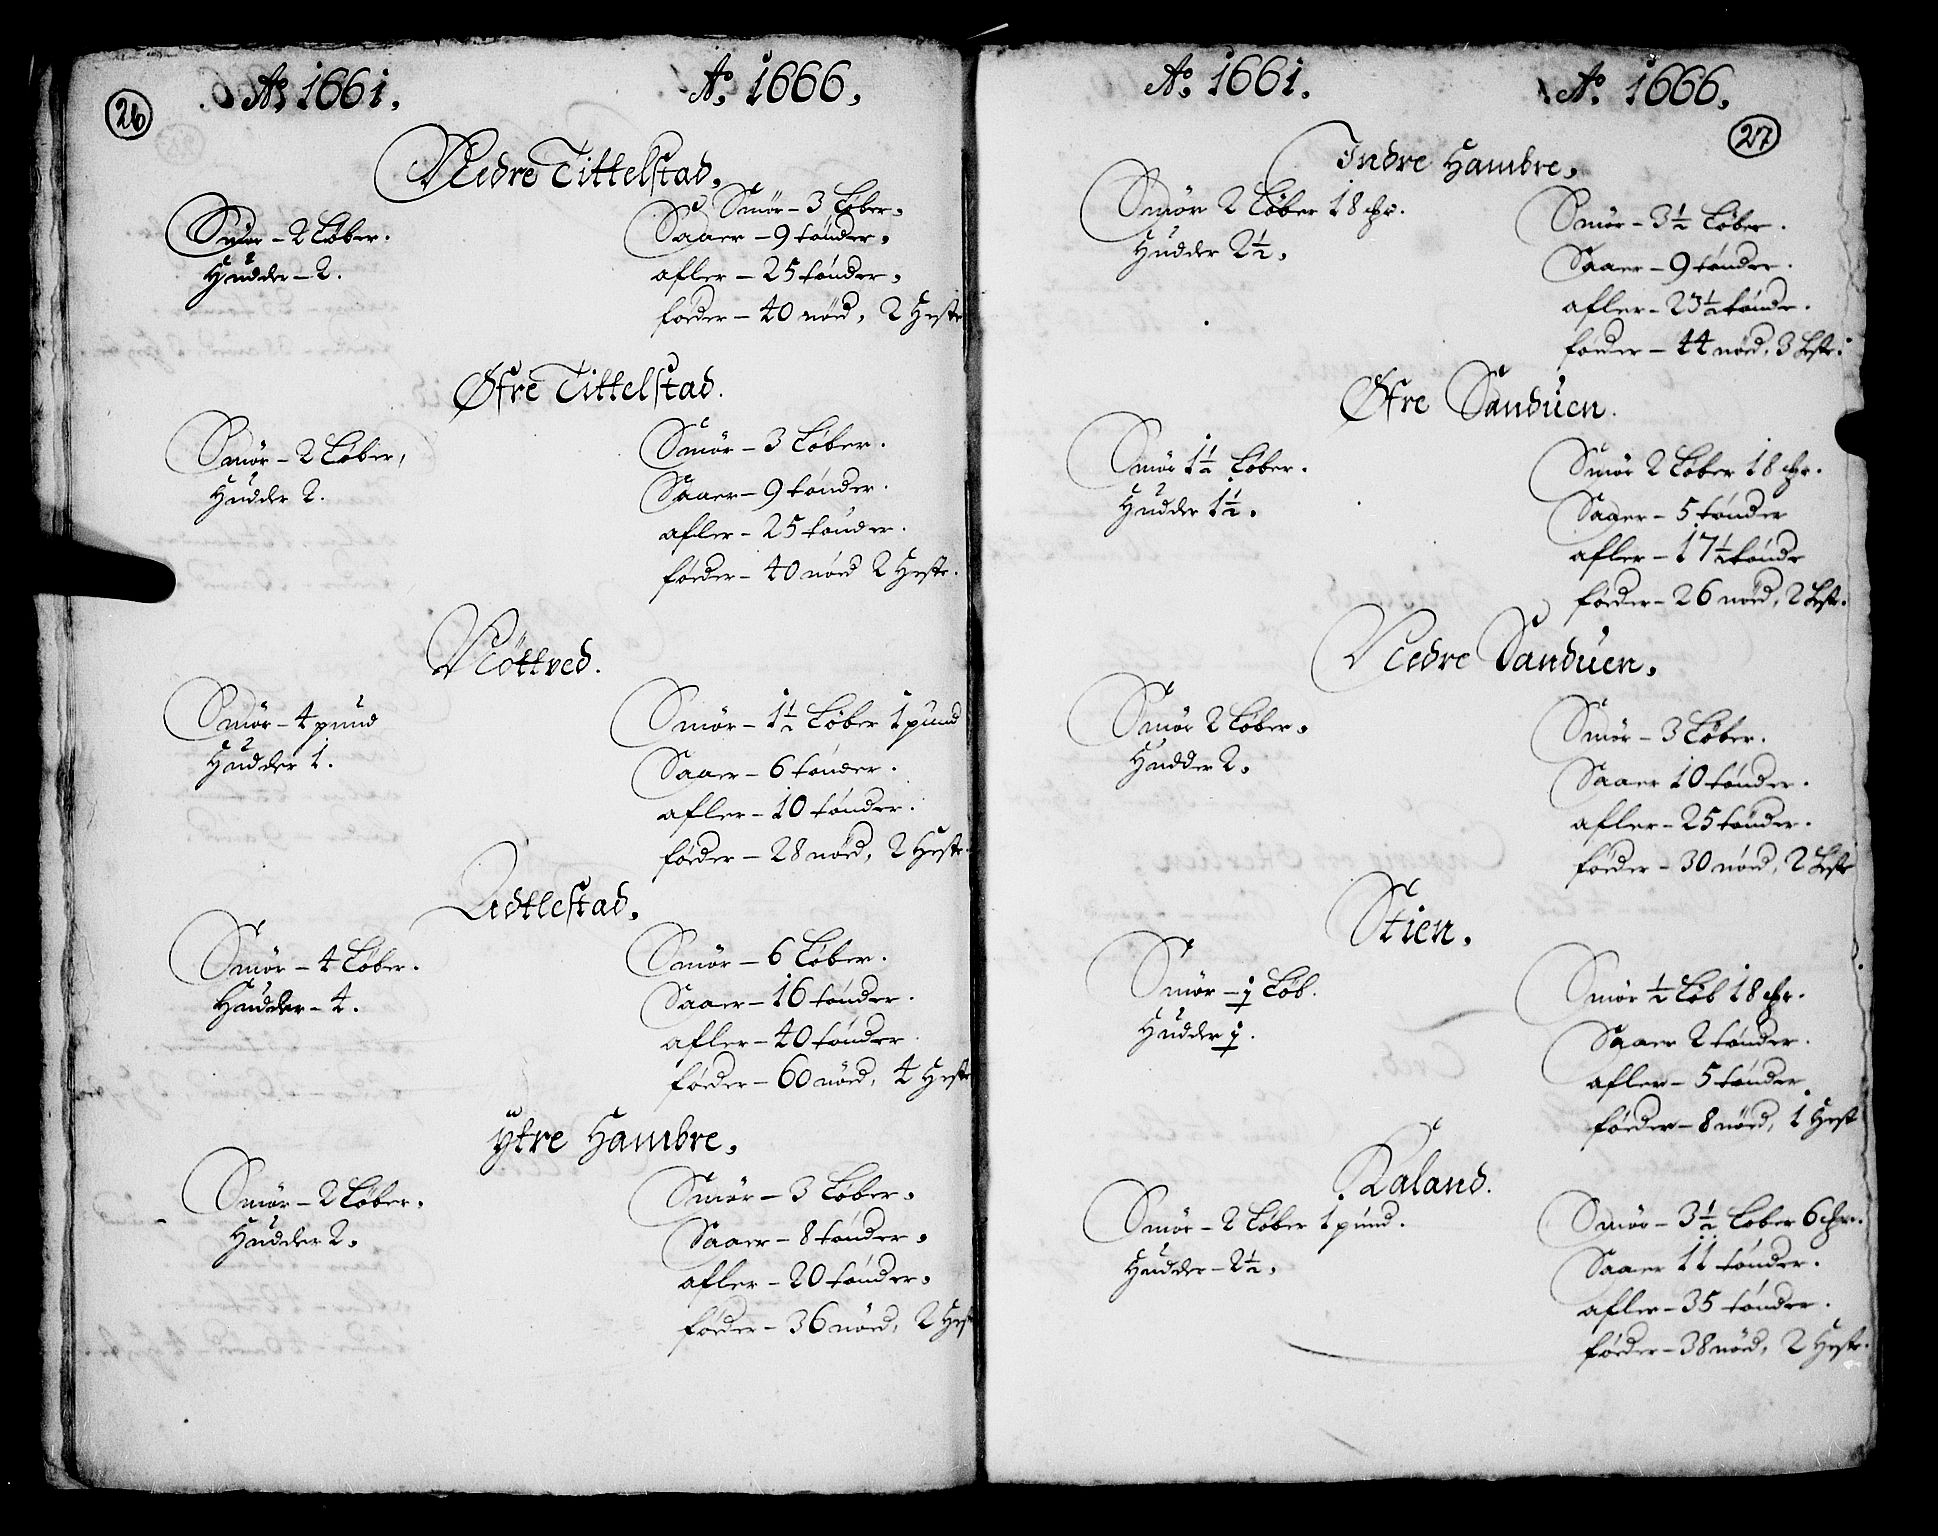 26
Aº. 1661.
Aº. 1666.
Nedre Tittelstad.
Smør – 2 Løber.
Hudder – 2.
Smør – 3 Løber.
Saaer – 9 tønder.
afler – 25 tønder.
føeder – 40 nöed, 2 Heste
Øfre Tittelstad.
Smör – 2 Løber,
Hudder 2.
Smör – 3 Løber.
Saaer – 9 tønder.
afler – 25 tønder.
føeder – 40 nöed 2 Heste.
Nöttved.
Smör – 4 pund
Hudder 1.
Smör – 1½ Løber 1 pund
Saaer – 6 tønder.
afler – 10 tønder.
føeder – 28 nöed, 2 Heste.
Adtlestad.
Smör – 4 Løber.
Hudder – 4.
Smör – 6 Løber.
Saaer – 16 tønder.
afler – 40 tønder
føeder – 60 nöed, 4 Heste
ÿtre Hambre.
Smör – 2 Løber.
Hudder 2.
Smör – 3 Løber.
Saaer – 8 tønder.
afler – 20 tønder.
føeder – 36 nöed, 2 Hest
27
Aº. 1661.
Aº. 1666.
Indre Hambre.
Smör 2 Løber 18
Hudder 2½.
Smör – 3½ Løber.
Saaer – 9 tønder.
afler – 23½ tønde.
føeder – 44 nöed, 3 Heste.
Øfre Sanduen.
Smör 1½ Løber.
Hudder 1½.
Smör 2 Løber 18
Saaer – 5 tønder
afler – 17½ tønde
føeder – 26 nöed, 2 Heste.
Nedre Sanduen.
Smör 2 Løber.
Hudder 2.
Smör – 3 Løber.
Saaer 10 tønder.
afler – 25 tønder.
føeder – 30 nöed, 2 Heste
Stien.
Smör – Løb.
Hudder
Smör ½ Løb 18
Saaer 2 tønder.
afler – 5 tønder
føeder – 8 nöed, 1 Hest
Kaland.
Smör – 2 Løber 1 pund.
Hudder – 2½.
Smör – 3½ Løber 6
Saaer 11 tønder.
afler – 35 tønder.
føeder – 38 nöed, 2 Heste.